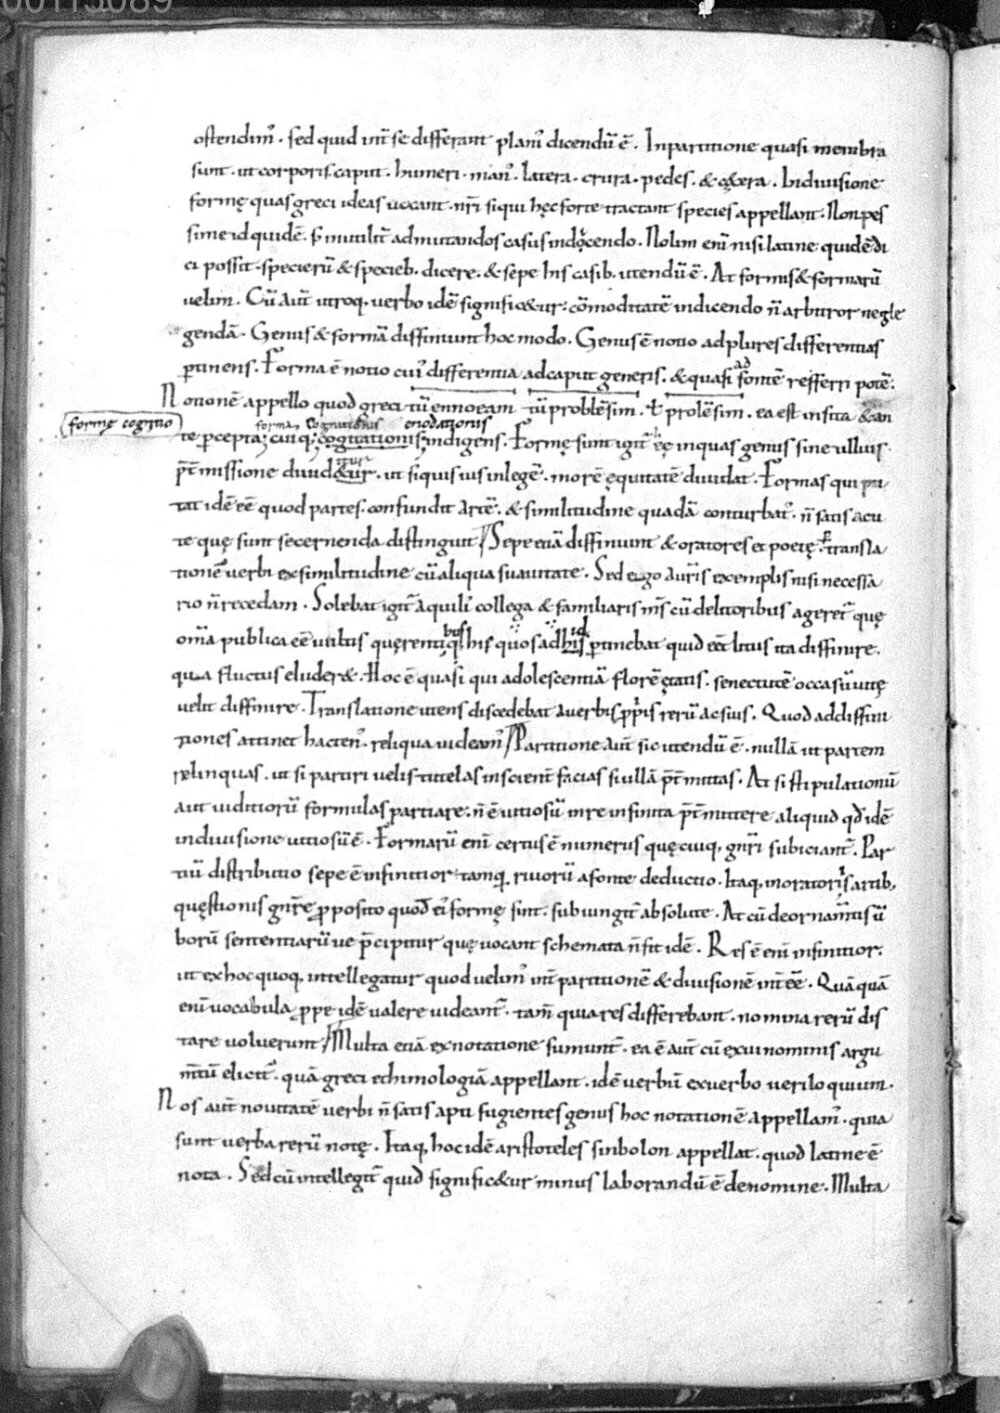 00113089
ostendim᾽. sed quid int̄ se differant plani᾽ dicendū ē. Inpartitione quasi membra
sunt. ut corporis caput. humeri. man᾽. latera. crura. pedes. & c&era. Indiuisione
formę quas greci ideas uocant. nr̄i siqui hęc forte tractant species appellant. Non pes
sime id quidē. s; inutilit̄ admutandos casus indọcendo. Nolim enī nisi latine quidē di
ci possit. specierū & specieb. dicere. & sępe his casib. utendū ē. At formis & formarū
uelim. Cū aūt utroq. uerbo idē signific&ur. cōmoditatē indicendo n̄ arbitror negle
gendā. Genus & formā diffiniunt hoc modo. Genus ē notio adplures differentias
ꝑtinens. Forma ē notio cui᾽ differentia adcaput generis. & quasi ad fontē refferri potē.
Notionē appello quod greci tū ennoeam tū problēsim. ł prolēsim. ea est insita & an
formę cognitio
formę cognitionis enodationis
te ꝑcepta; cuiq; cogitationis; indigens. Formę sunt igit̄ hę inquas genus sine ullius
p̄t missione diuid&ur. ut siquis ius inlegē. morē ęquitatē diuidat. Formas qui pu
tat idē eē quod partes. confundit artē. & similitudine quadā conturbat᾽. n̄ satis acu
te quę sunt secernenda distinguit / Sepe etiā diffiniunt & oratores et poetę ꝑ transla
tionē uerbi exsimilitudine cū aliqua suauitate. Sed ego auris exemplis nisi necessa
rio n̄ recedam. Solebat igit̄ aquili᾽ collega & familiaris m̄s cū delitoribus ageret̄ quę
om̄a publica eē utilius quęrentiq;bus his quos adhis id ꝑtinebat quid eēt litus ita diffinire.
qua fluctus eluder&. Hoc ē quasi qui adolescentiā florē ętatis. senectutē occasū uitę
uelit diffinire. Translatione utens discedebat auerbis ꝓpriis rerū ac suis. Quod addiffini
tiones attinet hacten᾽. reliqua uideam᾽ / Partitione aūt sic utendū ē. nullā ut partem
relinquas. ut si partiri uelis tutelas inscient̄ facias si ullā p̄t mittas. At si stipulationū
aut uiditiorū formulas partiare. n̄ ē uitiosū inre infinita p̄t mittere aliquid qd̄ idē
indiuisione uitiosū ē. Formarū enī certus ē numerus quę cuiq. gn̄ri subiciant̄. Par
tiū distributio sepe ē infinitior tamq. riuorū afonte deductio. Itaq. inoratoriis artib.
quęstionis gn̄re ꝓposito quod ei᾽ formę sint. subiungit̄ absolute. At cū deornam̄tis ū
borū sententiarū ue p̄cipitur quę uocant schemata n̄ fit idē. Res ē enī infinitior.
ut exhoc quoq. intellegatur quod uelim᾽ int̄ partitionē & diuisionē int̄ eē. Quā quā
enī uocabula ꝓpe idē ualere uideant̄. tam̄ quia res differebant. nomina rerū dis
tare uoluerunt / Multa etiā exnotatione sumunt̄. ea ē aūt cū exui nominis argu
m̄tū elicit̄. quā greci ethimologiā appellant. idē uerbū exuerbo ueriloquium.
Nos aūt nouitatē uerbi n̄ satis apti fugientes genus hoc notationē appellam᾽. quia
sunt uerba rerū notę. Itaq. hoc idē aristoteles sinbolon appellat. quod latine ē
nota. Sed cū intellegit̄ quid signific&ur minus laborandū ē denomine. Multa